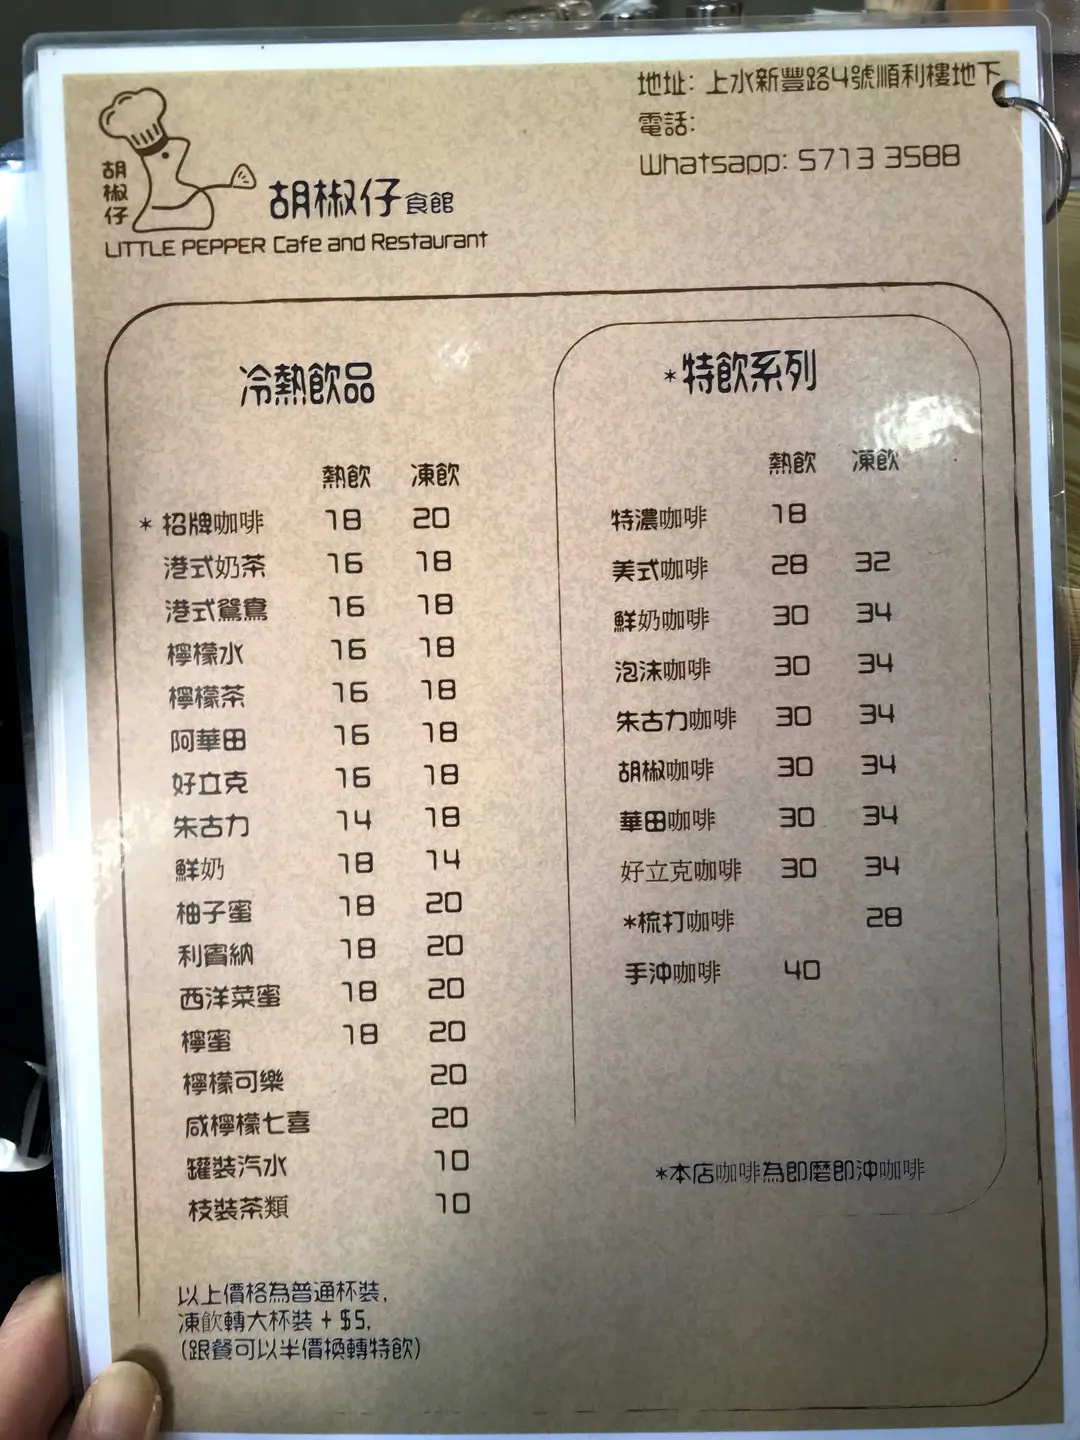 地址: 上水新豐路4號順利樓地下
電話:
Whatsapp: 5713 3588
胡椒仔
胡椒仔食館
LITTLE PEPPER Cafe and Restaurant
冷熱飲品
熱飲 凍飲
* 招牌咖啡 18 20
港式奶茶 16 18
港式鴛鴦 16 18
檸檬水 16 18
檸檬茶 16 18
阿華田 16 18
好立克 16 18
朱古力 14 18
鮮奶 18 14
柚子蜜 18 20
利賓納 18 20
西洋菜蜜 18 20
檸蜜 18 20
檸檬可樂 20
咸檸檬七喜 20
罐裝汽水 10
枝裝茶類 10
以上價格為普通杯裝,
凍飲轉大杯裝 + $5,
(跟餐可以半價換轉特飲)
*特飲系列
熱飲 凍飲
特濃咖啡 18
美式咖啡 28 32
鮮奶咖啡 30 34
泡沫咖啡 30 34
朱古力咖啡 30 34
胡椒咖啡 30 34
華田咖啡 30 34
好立克咖啡 30 34
*梳打咖啡 28
手沖咖啡 40
*本店咖啡為即磨即沖咖啡